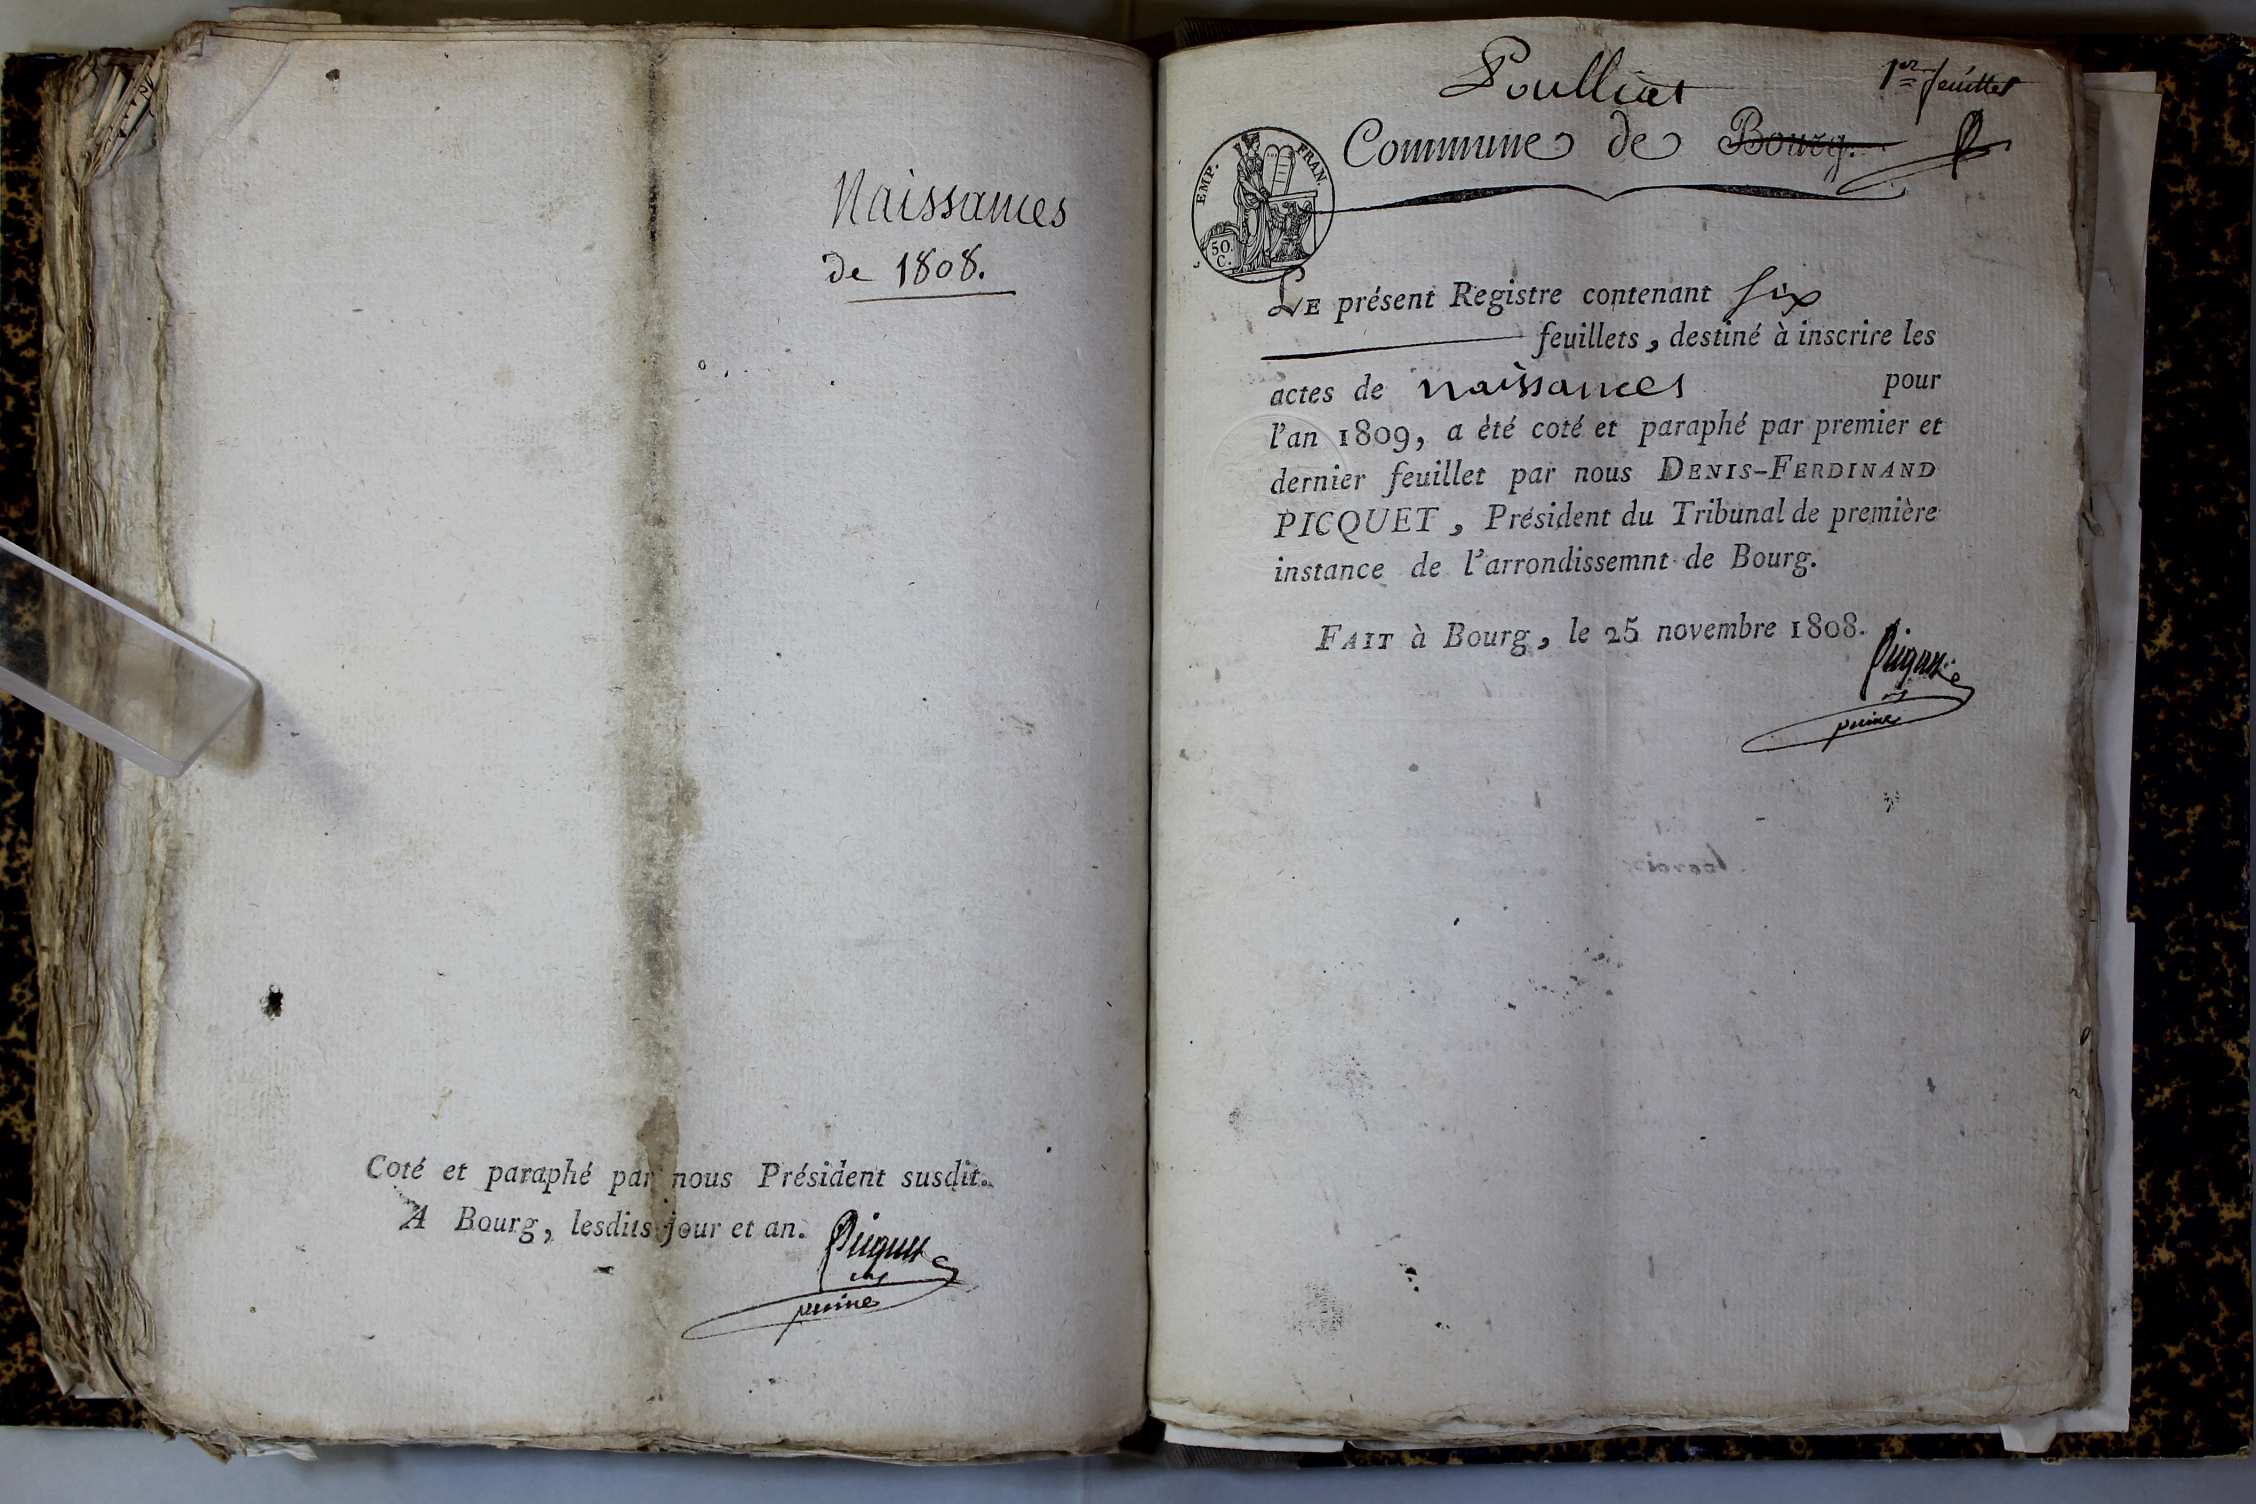 Naissances
de 1808.
Coté et paraphé par nous Président susdit.
A Bourg, lesdits jour et an.
Picquet
1er feuillet
Poulliat
Commune de Bourg.
EMP. FRAN.
50
C.
LE présent Registre contenant six
feuillets, destiné à inscrire les
actes de naissances pour
l'an 1809, a èté coté et paraphé par premier et
dernier feuillet par nous DENIS-FERDINAND
PICQUET, Président du Tribunal de première
instance de l'arrondissemnt de Bourg.
FAIT à Bourg, le 25 novembre 1808.
Picquet